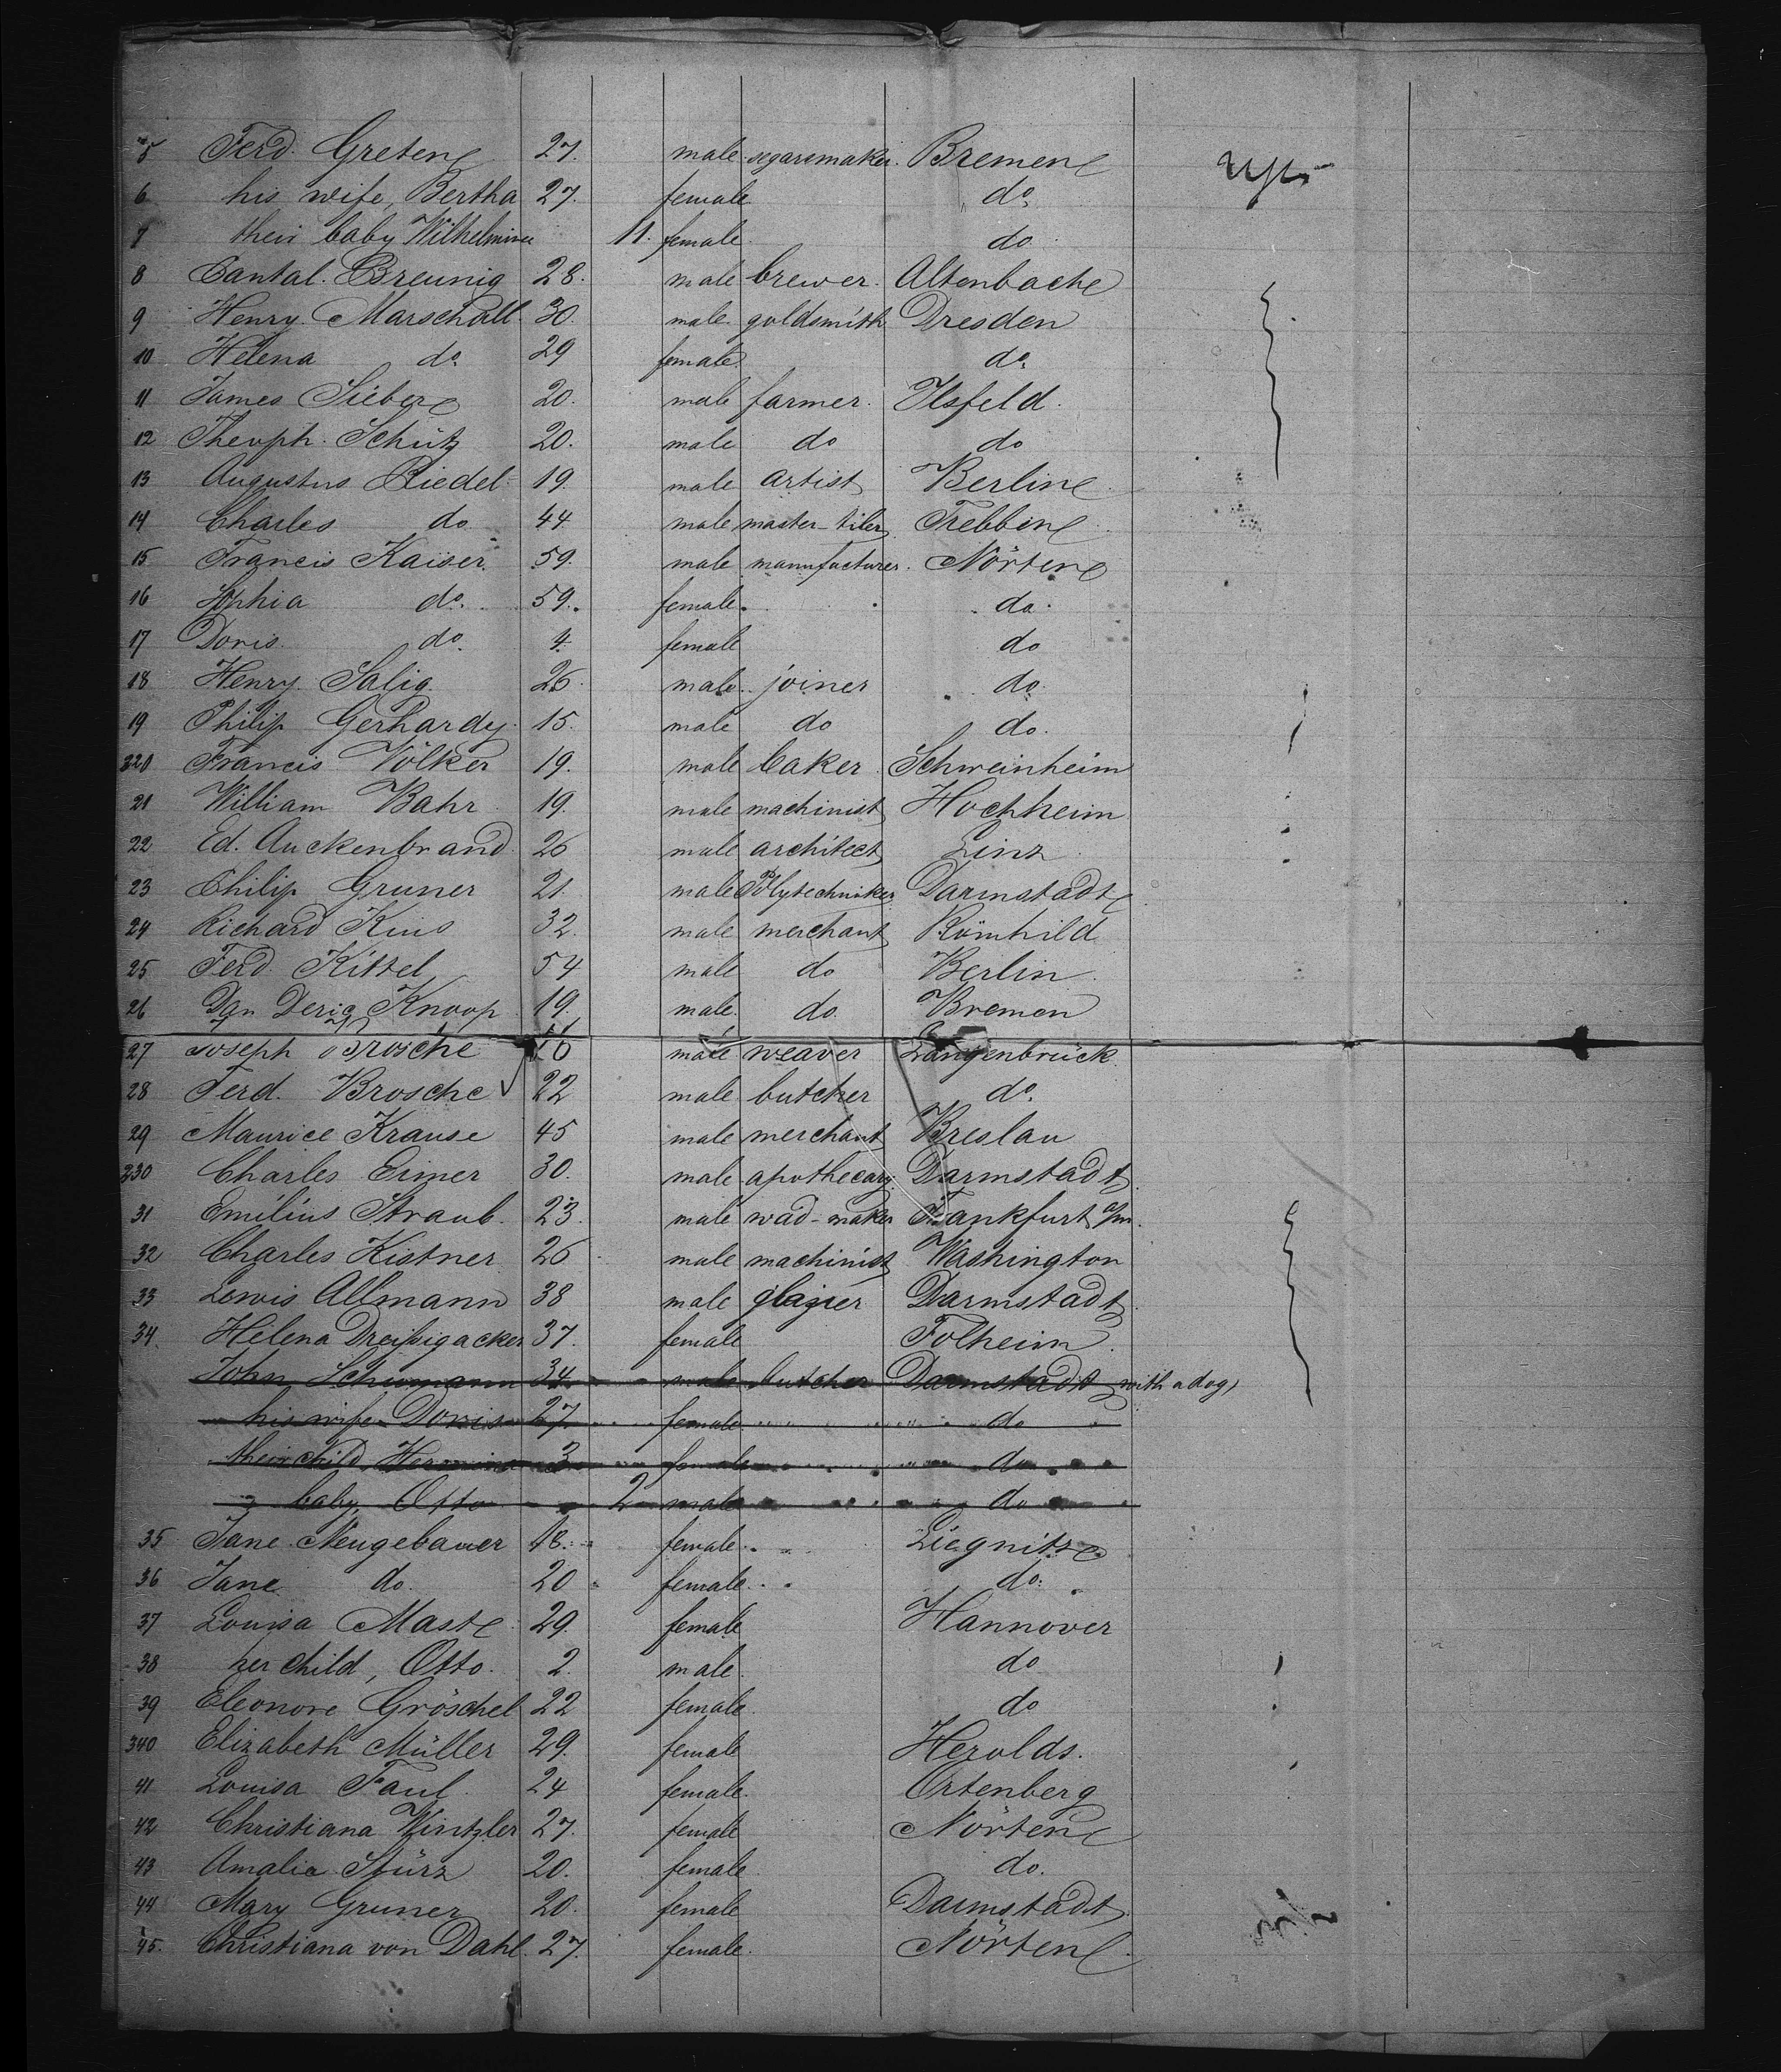 5 Ferd. Greten 27. male segarsmaker. Bremen
6 his wife, Bertha 27. female do.
7 their baby Wilhelmine 11. female do
8 Cantal. Breunig 28. male brewer. Altenbache
9 Henry Marschall 30. male goldsmith Dresden
10 Helena do. 29 female do.
11 James Sieber 20. male farmer. Ilsfeld.
12 Theoph. Schütz 20. male do do
13 Augustus Riedel 19. male artist Berlin
14 Charles do 44 male master-tiler Trebbin
15 Francis Kaiser. 59. male manufacturer. Nörten
16 Sophia do. 59. female. do.
17 Doris do. 4. female do
18 Henry. Salig. 26. male. joiner do.
19 Philip Gerhardy 15. male do do.
320 Francis Völker 19. male baker Schweinheim
21 William Bahr 19. male machinist Hochheim
22 Ed. Auckenbrand 26 male architect Linz
23 Philip Gruner 21. male Polytechniker Darmstadt
24 Richard Kius 32. male merchant Römhild
25 Ferd. Kittel 54 male do Berlin
26 Deric Knoop 19. male. do. Bremen
27 Joseph Brosche male weaver Langenbrück
28 Ferd. Brosche 22 male butcher do.
29 Maurice Krause 45 male merchant Breslau
230 Charles Eimer 30. male apothecary. Darmstadt
31 Emilius Straub. 23. male wad-maker Frankfurt a/m.
32 Charles Kistner 26 male machinist Washington
33 Lewis Allmann 38 male glazier Darmstadt
34. Helena Dreißigacker 37. female Folheim
John Schumann 34 male butcher Darmstadt with a dog)
his wife Doris 27 female do
their child Hermine 3 female do
baby, Otto 2 male do
35 Jane Neugebauer 18. female. Liegnitz
36 Jane do. 20 female. do.
37 Louisa Mast 29. female Hannover
38 her child, Otto. 2. male. do
39 Eleonore Gröschel 22 female. do
340 Elizabeth Müller 29. female Herolds.
41 Louisa Faul 24 female. Ortenberg
42 Christiana Wintzler 27. female Nörten
43 Amalia Stürz 20. female do.
44 Mary Gruner 20. female Darmstadt
45. Christiana von Dahl. 27. female. Nörten